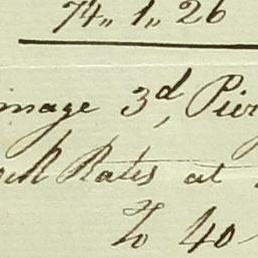 74,, 1,, 26
mage 3d, Pier
ock Rates at
To 40